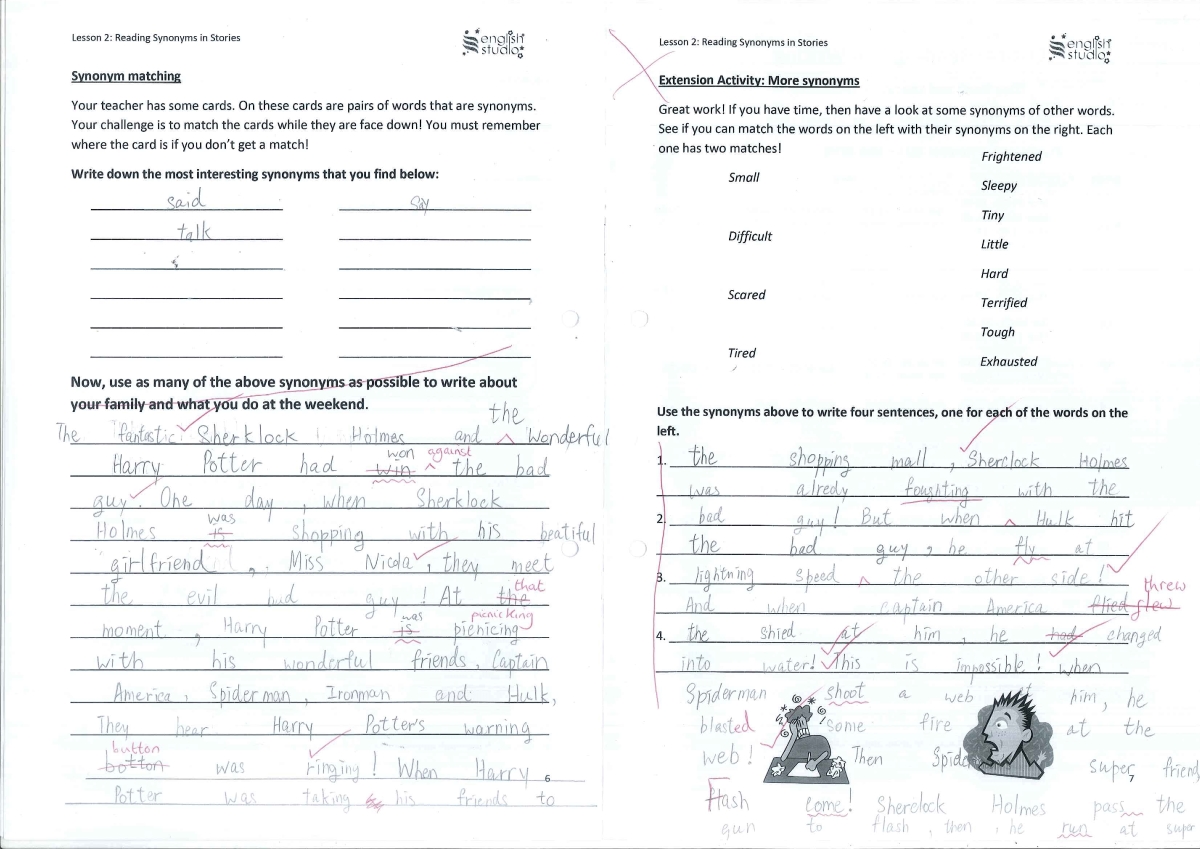 Lesson 2: Reading Synonyms in Stories
english
studio
Synonym matching
Your teacher has some cards. On these cards are pairs of words that are synonyms.
Your challenge is to match the cards while they are face down! You must remember
where the card is if you don't get a match!
Write down the most interesting synonyms that you find below:
said say
talk
Now, use as many of the above synonyms as possible to write about
your family and what you do at the weekend.
the
The fantastic Sherklock Holmes and Wonderful
won against
Harry Potter had win the bad
guy. One day, when Sherklock
was
Holmes is shopping with his beatiful
girlfriend, Miss Nicola, they meet
that
the evil bad guy! At the
was picnicking
moment, Harry Potter is picnicing
with his wonderful friends, Captain
America, Spiderman, Ironman and Hulk,
They hear Harry Potter's warning
button
botton was ringing! When Harry
6
Potter was taking his friends to
Lesson 2: Reading Synonyms in Stories
english
studio
Extension Activity: More synonyms
Great work! If you have time, then have a look at some synonyms of other words.
See if you can match the words on the left with their synonyms on the right. Each
one has two matches!
Frightened
Small
Sleepy
Tiny
Difficult
Little
Hard
Scared
Terrified
Tough
Tired
Exhausted
Use the synonyms above to write four sentences, one for each of the words on the
left.
1. the shopping mall, Sherclock Holmes
was alredy foughting with the
2. bad guy! But when Hulk hit
the bad guy, he fly at
3. lightning speed the other side!
threw
And when captain America flied flew
4. the shied at him, he had changed
into water! This is impossible! When
Spiderman shoot a web him, he
blasted some fire at the
web! Then super friend
7
Flash come! Sherclock Holmes pass the
gun to flash, then, he run at super